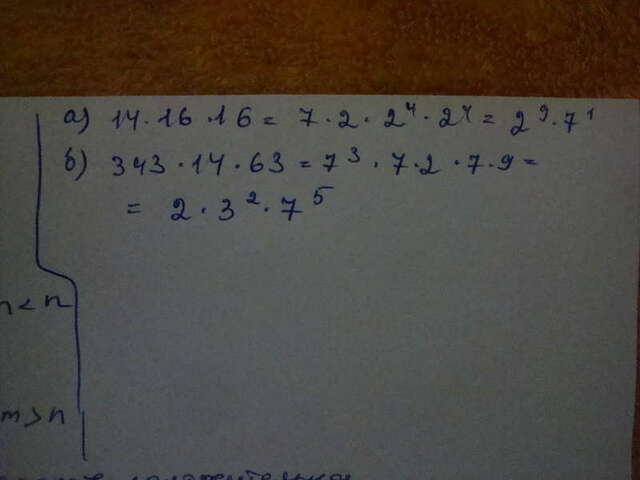 а) 14·16·16 = 7·2·2⁴·2⁴ = 2⁹·7¹
б) 343·14·63 = 7³·7·2·7·9 =
= 2·3²·7⁵
m > n